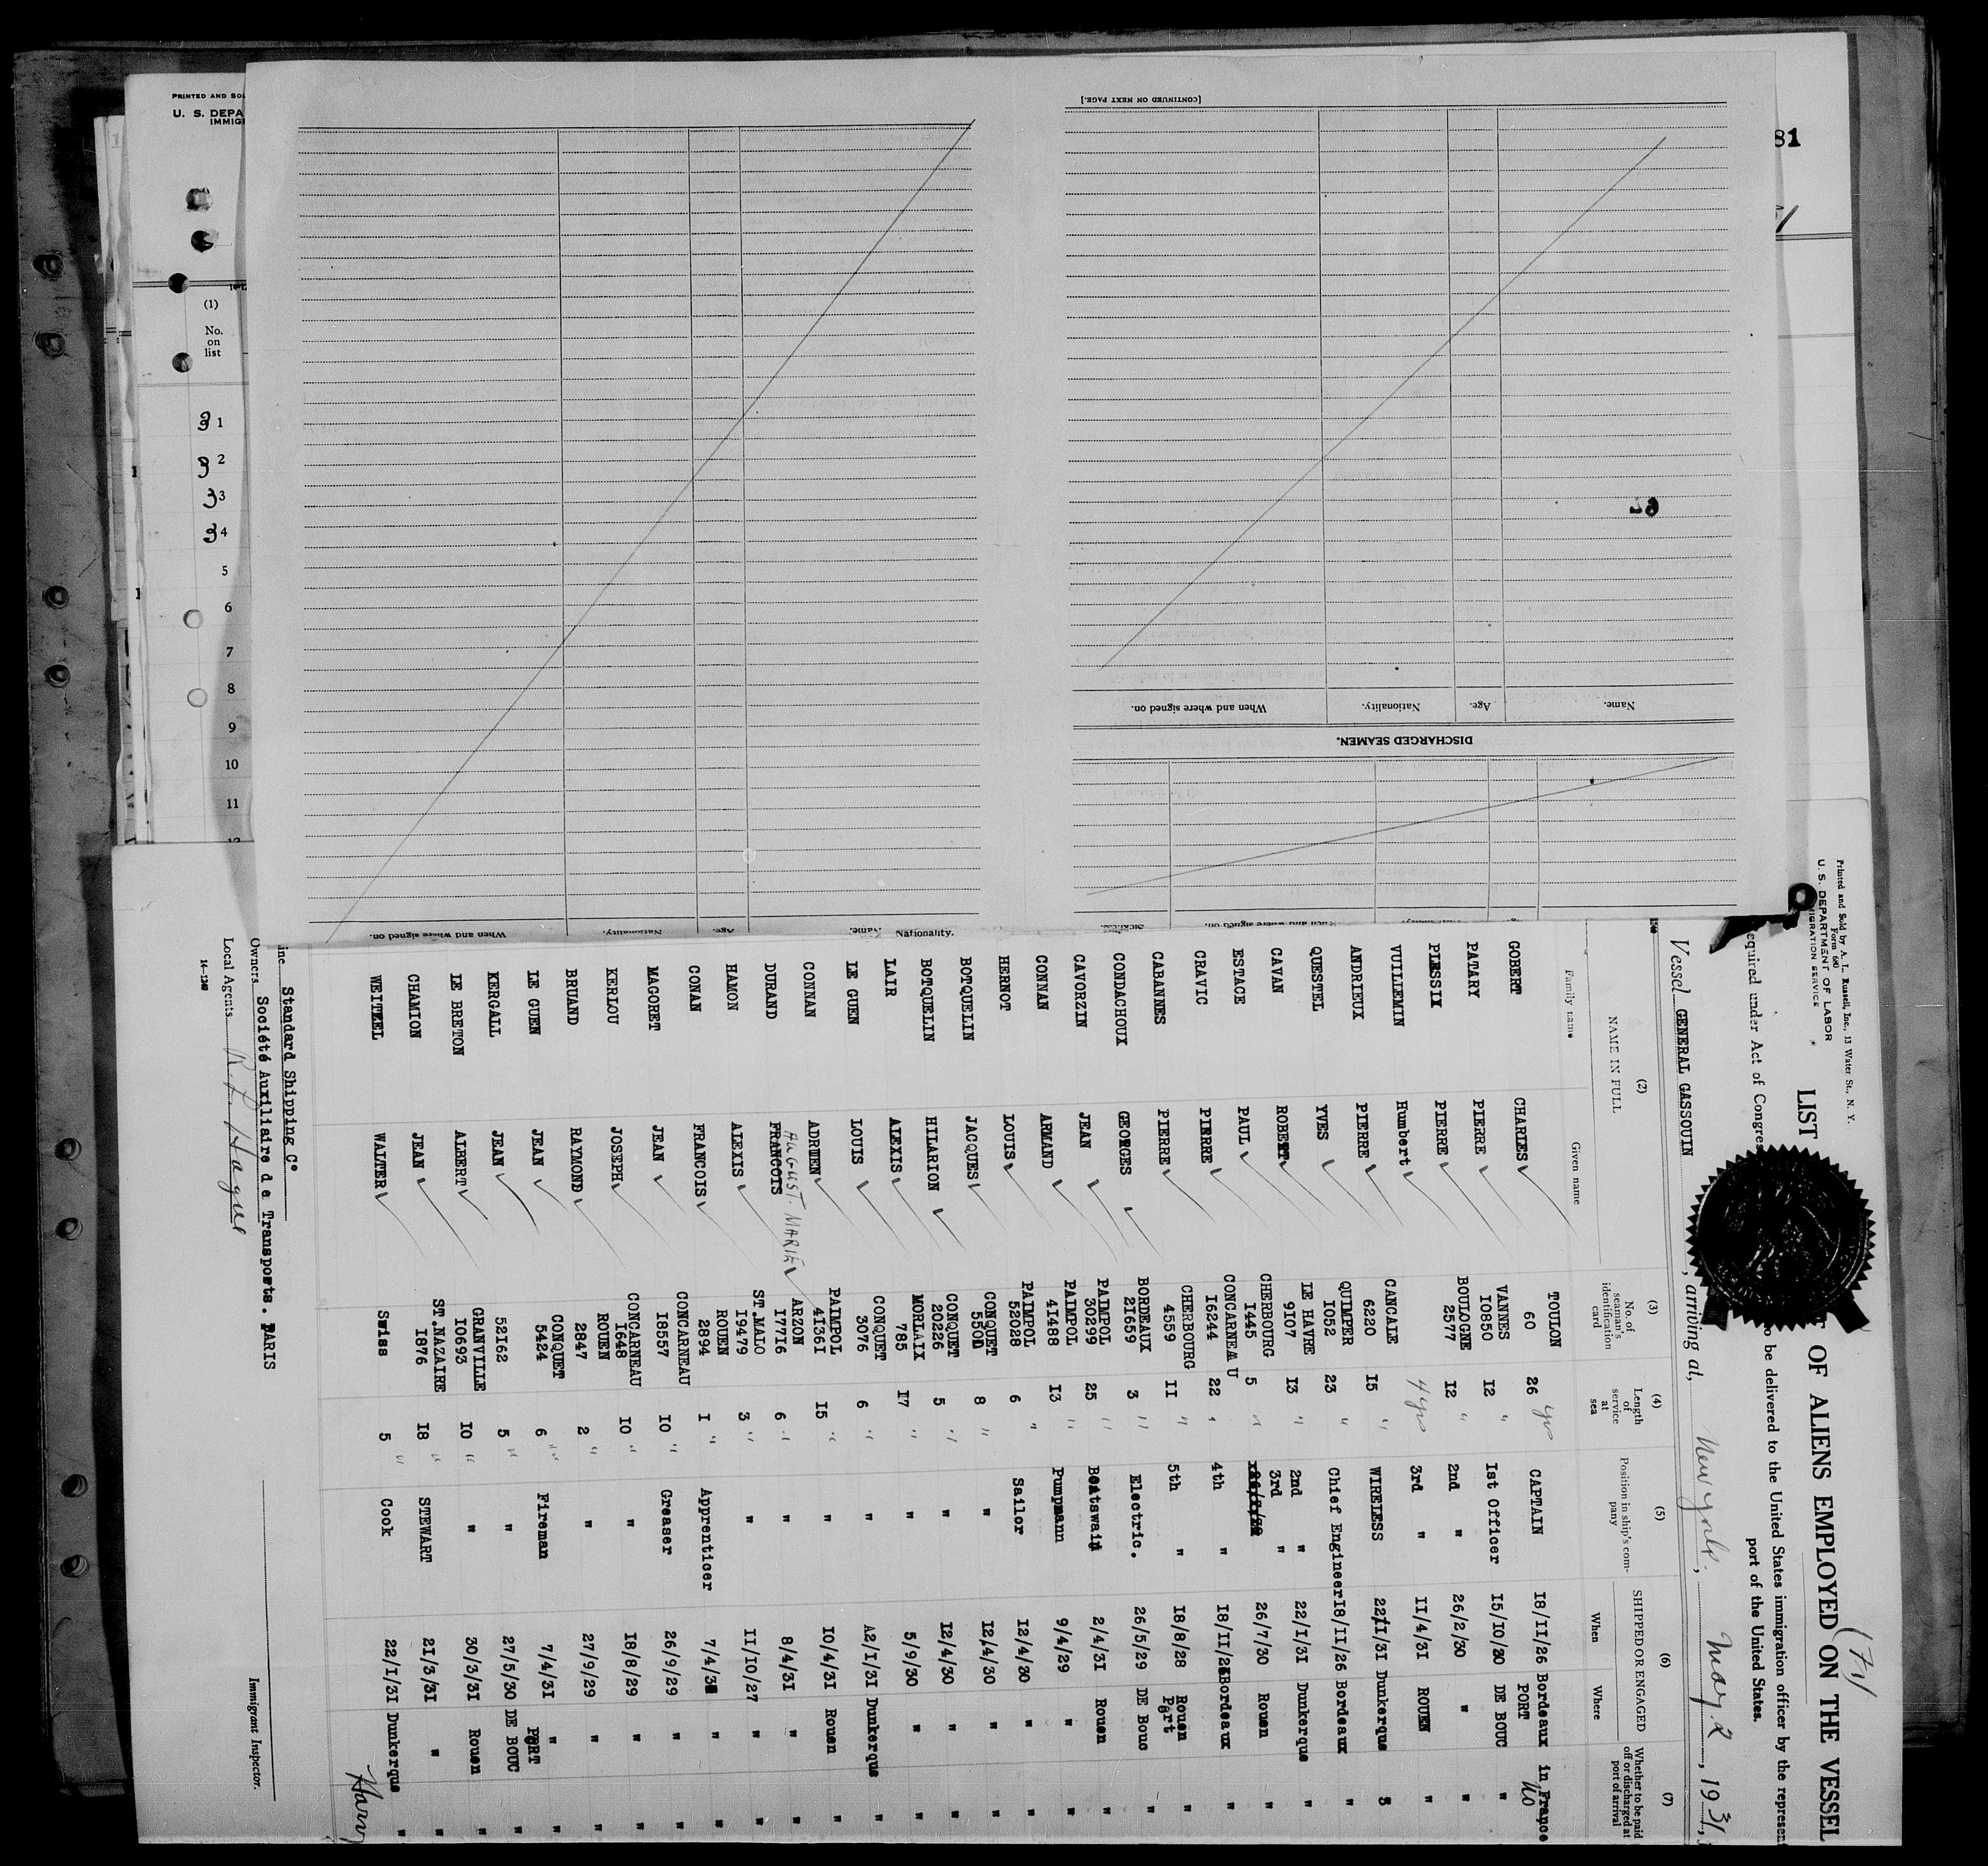 PRINTED AND SOL
U. S. DEPA
IMMIGR
(1)
No.
on
list
3 1
3 2
3 3
3 4
5
6
7
8
9
10
11
12
81
[CONTINUED ON NEXT PAGE.]
Name. Age. Nationality. When and where signed on.
DISCHARGED SEAMEN.
Name. Age. Nationality. When and where signed on.
Nationality.
Printed and Sold by A. L. Russell, Inc., 13 Water St., N. Y.
Form 680
U. S. DEPARTMENT OF LABOR
IMMIGRATION SERVICE
LIST OF ALIENS EMPLOYED ON THE VESSEL
(71)
equired under Act of Congres o be delivered to the United States immigration officer by the represen
port of the United States.
Vessel GENERAL GASSOUIN, arriving at, New York, May 2, 1931,
(2) (3) (4) (5) (6) (7)
NAME IN FULL
Family name Given name
No. of seaman's identification card
Length of service at sea
Position in ship's company
SHIPPED OR ENGAGED
When Where
Whether to be paid off or discharged at port of arrival
GOBERT CHARLES TOULON 60 26 yrs CAPTAIN 18/11/26 Bordeaux in France No
PATARY PIERRE VANNES 10850 12 " 1st Officer 15/10/30 PORT DE BOUC "
PLESSIX PIERRE BOULOGNE 2577 12 " 2nd " 26/2/30 " "
VUILLEMIN Humbert 4 yrs 3rd " 11/4/31 ROUEN "
ANDRIEUX PIERRE CANCALE 6220 15 " WIRELESS 22/1/31 Dunkerque "
QUESTEL YVES QUIMPER 1052 23 " Chief Engineer 18/11/26 Bordeaux "
CAVAN ROBERT LE HAVRE 9107 13 " 2nd " 22/1/31 Dunkerque "
ESTACE PAUL CHERBOURG 1445 5 " 3rd " 26/7/30 Rouen "
CRAVIC PIERRE CONCARNEAU 16244 22 " 4th " 18/11/26 Bordeaux "
CABANNES PIERRE CHERBOURG 4559 11 " 5th " 18/8/28 Rouen "
CONDACHOUX GEORGES BORDEAUX 21659 3 " Electric. 26/5/29 Port DE Bouc "
CAVORZIN JEAN PAIMPOL 30299 25 " Boatswain 2/4/31 Rouen "
CONNAN ARMAND PAIMPOL 41488 13 " Pumpmann 9/4/29 " "
HERNOT LOUIS PAIMPOL 52028 6 " Sailor 12/4/30 " "
BOTQUELIN JACQUES CONQUET 550 8 " " 12/4/30 " "
BOTQUELIN HILARION CONQUET 20226 5 " " 12/4/30 " "
LAIR ALEXIS MORLAIX 785 17 " " 5/9/30 " "
LE GUEN LOUIS CONQUET 3076 6 " " 22/1/31 Dunkerque "
CONNAN ADRIEN PAIMPOL 41361 15 " " 10/4/31 Rouen "
DURAND FRANCOIS AUGUST. MARIE ARZON 17716 6 " " 8/4/31 " "
HAMON ALEXIS ST.MALO 19479 3 " " 11/10/27 " "
CONAN FRANCOIS ROUEN 2894 1 " Apprenticer 7/4/31 " "
MAGORET JEAN CONCARNEAU 18557 10 " Greaser 26/9/29 " "
KERLOU JOSEPH CONCARNEAU 1648 10 " " 18/8/29 " "
BRUAND RAYMOND ROUEN 2847 2 " " 27/9/29 " "
LE GUEN JEAN CONQUET 5424 6 " Fireman 7/4/31 " "
KERGALL JEAN 52162 5 " " 27/5/30 PORT DE BOUC "
LE BRETON ALBERT GRANVILLE 10693 10 " " 30/3/31 Rouen "
CHAMION JEAN ST.NAZAIRE 1876 18 " STEWART 21/3/31 " "
WEITZEL WALTER Swiss 5 " Cook 22/1/31 Dunkerque "
Line Standard Shipping C°
Owners Société Auxiliaire de Transports. PARIS
Local Agents R. L. Hague
Immigrant Inspector.
14—1240